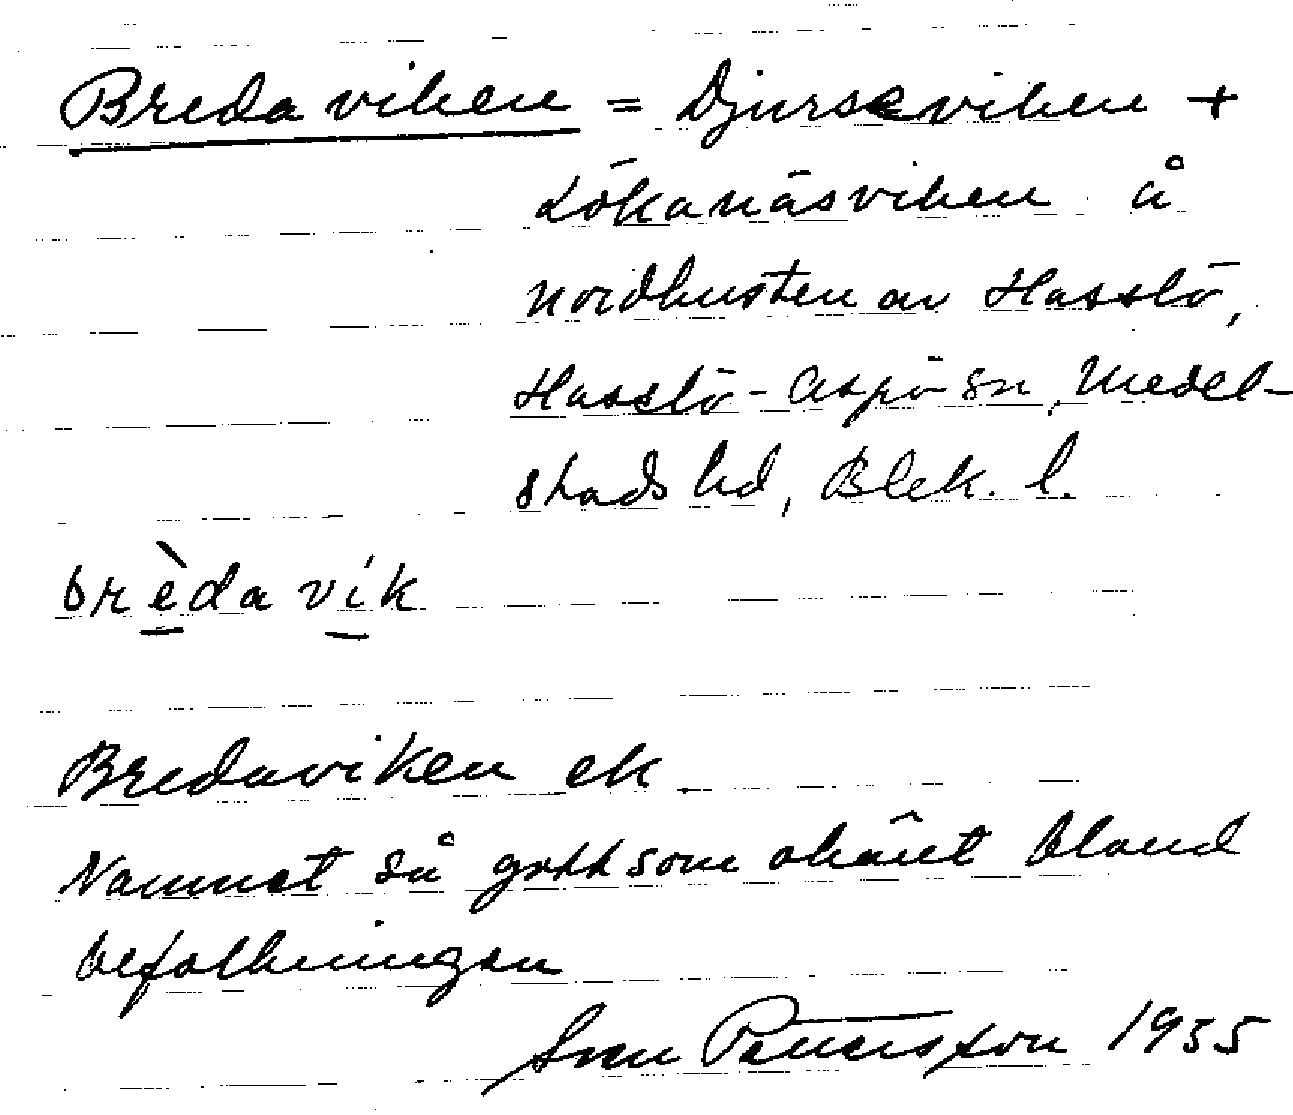 Breda viken = Djurseviken +
Lökanäsviken å
nordkusten av Hasslö,
Hasslö-Aspö sn, Medel-
stads hd, Blek. l.
brèda vík
Bredaviken ek.
Namnet så gott som okänt bland
befolkningen
Sven Pettersson 1935